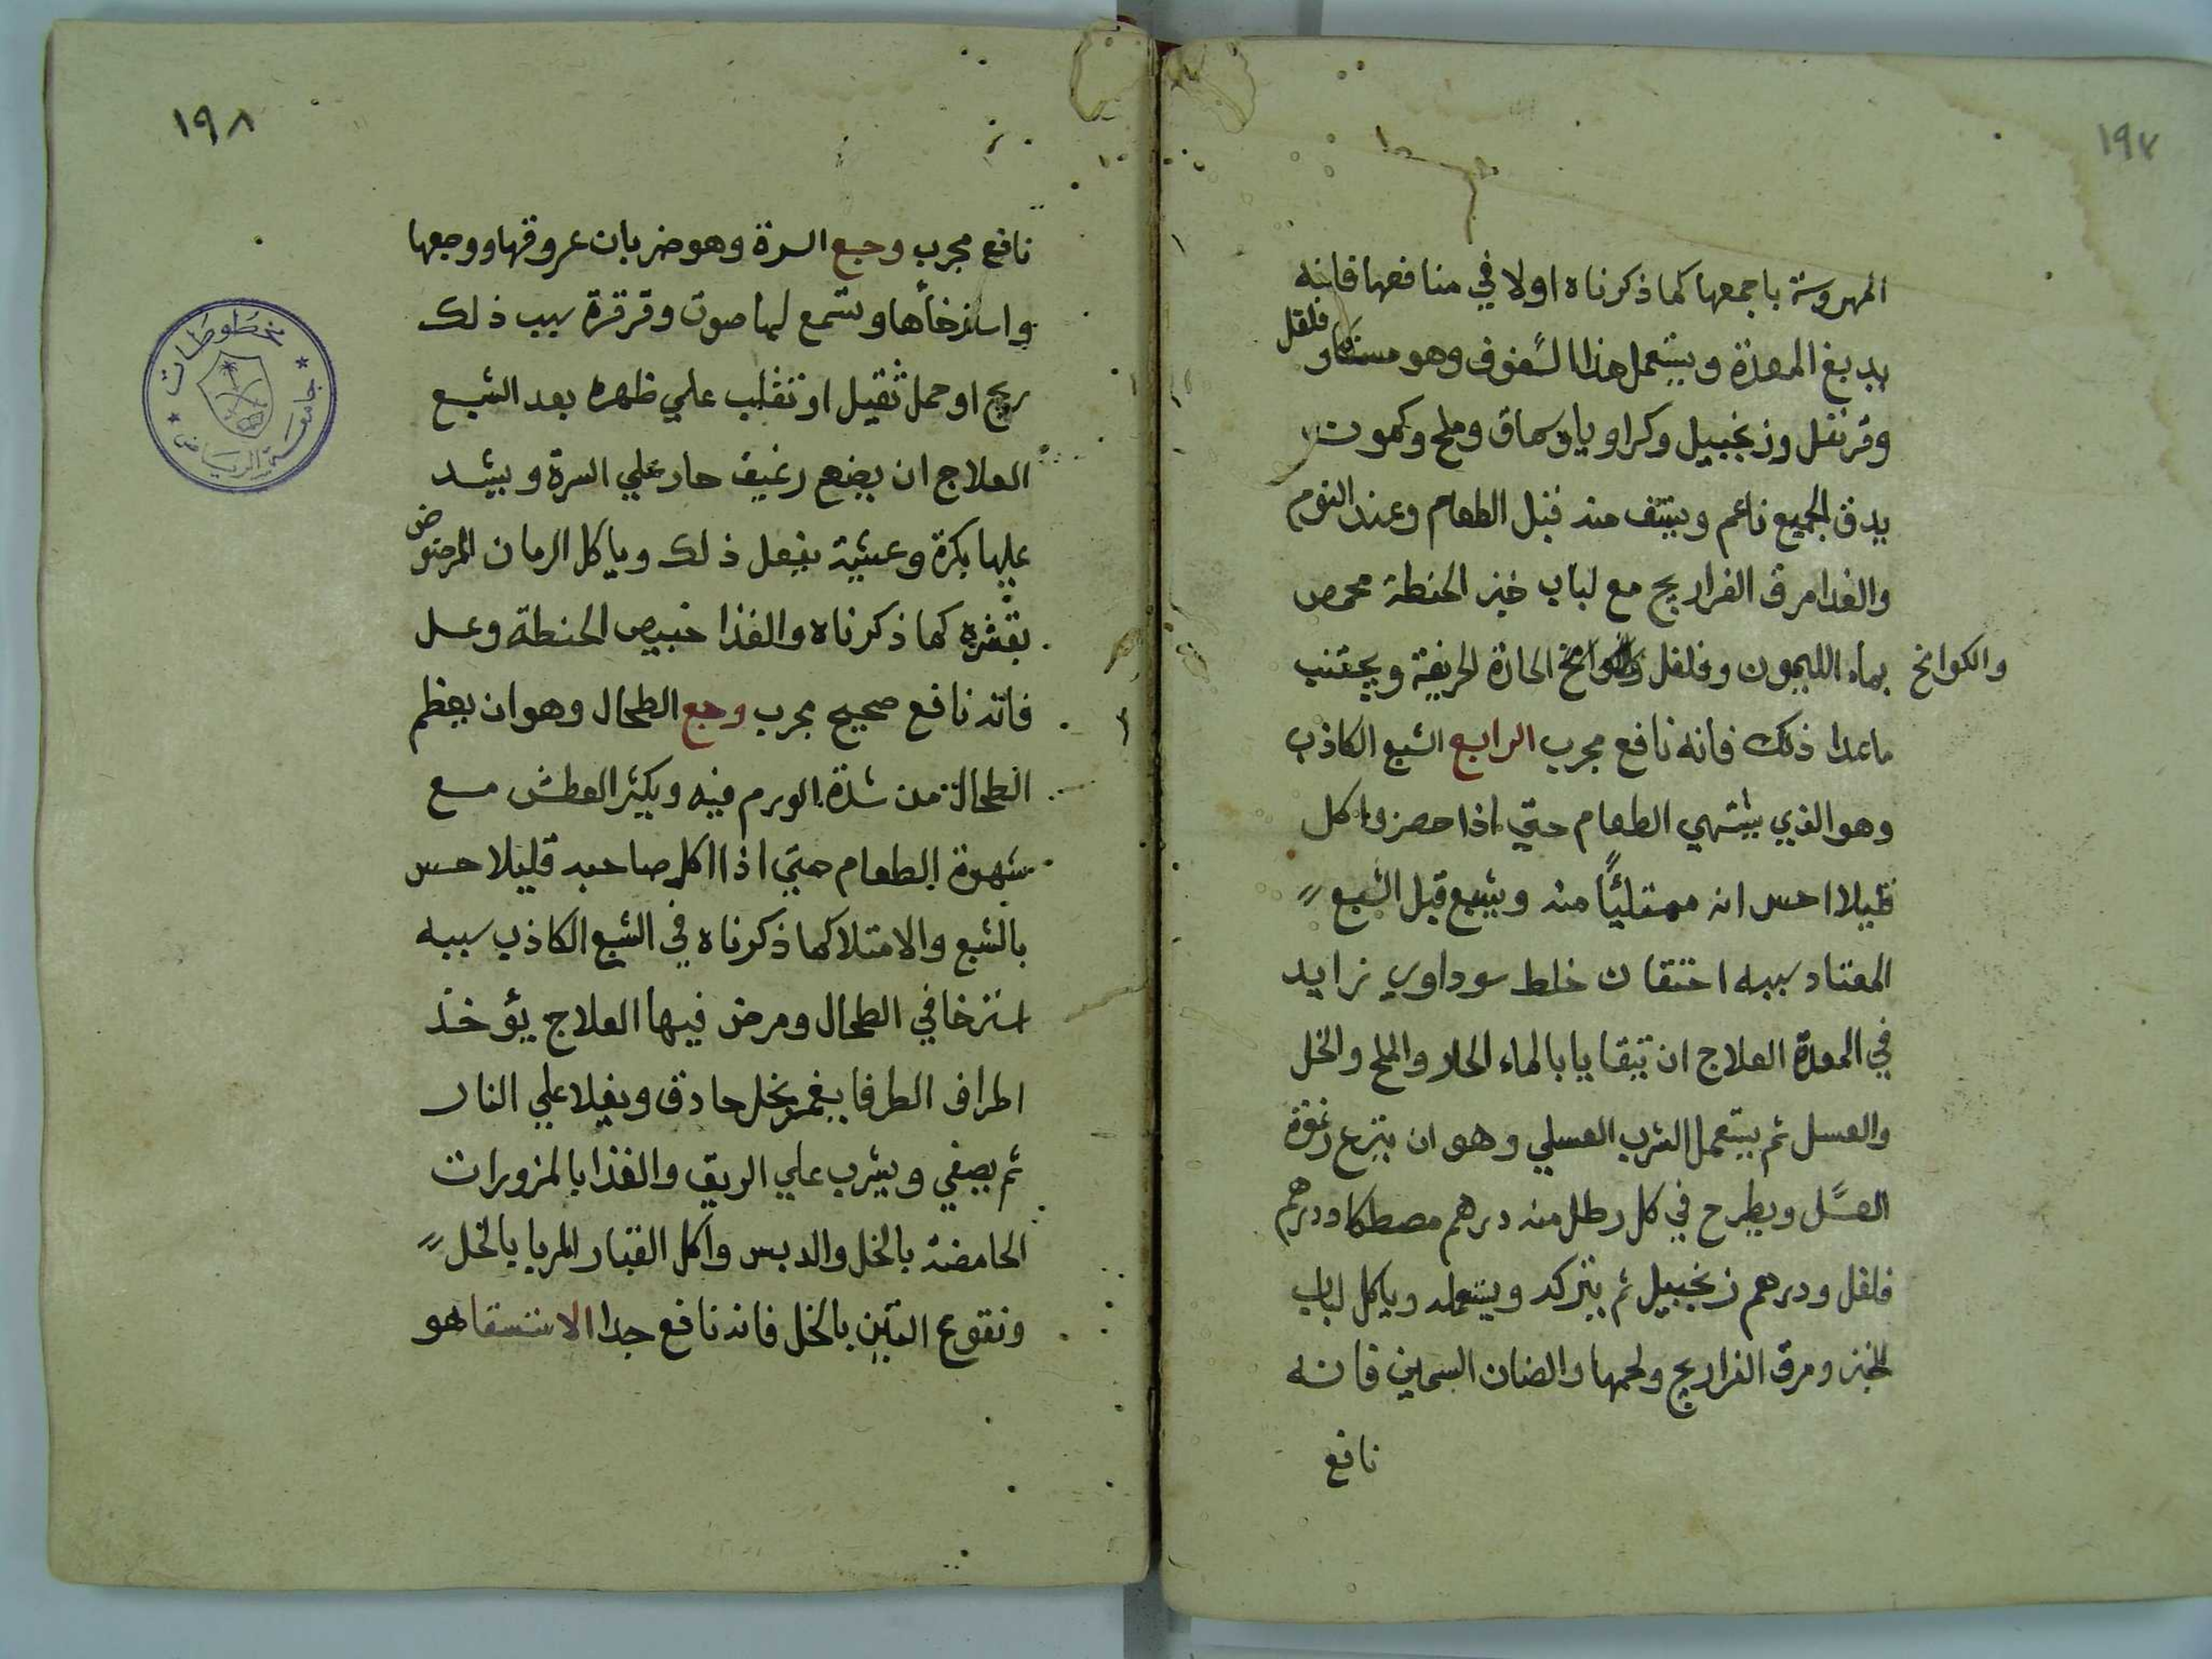 ١٩٧
المهروسة باجمعها كما ذكرناه اولا في منافعها فانه
يدبغ المعدة ويستعمل هذا السفوف وهو مستكا وفلفل
وقرنفل وزنجبيل وكراويا وسماق وملح وكمون
يدق الجميع ناعم ويستف منه قبل الطعام وعند النوم
والغدا مرق الفراريج مع لباب خبز الحنطة محمص
بماء الليمون وفلفل والكوامخ الحارة الحريفة ويجتنب
والكوامخ
ماعدا ذلك فانه نافع مجرب الرابع الشبع الكاذب
وهو الذي يشتهي الطعام حتي اذا حضر واكل
قليلا احس انه ممتلئًا منه ويشبع قبل الشبع
المعتاد سببه احتقان خلط سوداوي زايد
في المعدة العلاج ان تيقايا بالماء الحار والملح والخل
والعسل ثم يستعمل الشرب العسلي وهو ان ينزع رغوة
العسل ويطرح في كل رطل منه درهم مصطكا ودرهم
فلفل ودرهم زنجبيل ثم يتركه ويستعمله وياكل لباب
الخبز ومرق الفراريج ولحمها والضان السمين فانه
نافع
١٩٨
نافع مجرب وجع السرة وهو ضربان عروقها ووجعها
واسترخاها وتسمع لها صوت وقرقرة سبب ذلك
ريح او حمل ثقيل او تقلب علي ظهره بعد الشبع
العلاج ان يضع رغيف حار علي السرة ويشد
عليها بكرة وعشية يفعل ذلك وياكل الرمان المرضوض
بقشره كما ذكرناه والغذا خبيص الحنطة وعسل
فانه نافع صحيح مجرب وجع الطحال وهو ان يعظم
الطحال من شدة الورم فيه ويكثر العطش مع
شهوة الطعام حتي اذا اكل صاحبه قليلا حس
بالشبع والامتلا كما ذكرناه في الشبع الكاذب سببه
استرخا في الطحال ومرض فيها العلاج يؤخذ
اطراف الطرفا يغمر بخل حاذق ويغلا علي النار
ثم يصفي ويشرب علي الريق والغذا بالمزورات
الحامضة بالخل والدبس واكل القبار المربا بالخل
ونقوع التين بالخل فانه نافع جدا الاستسقا هو
مخطوطات
جامعة الرياض